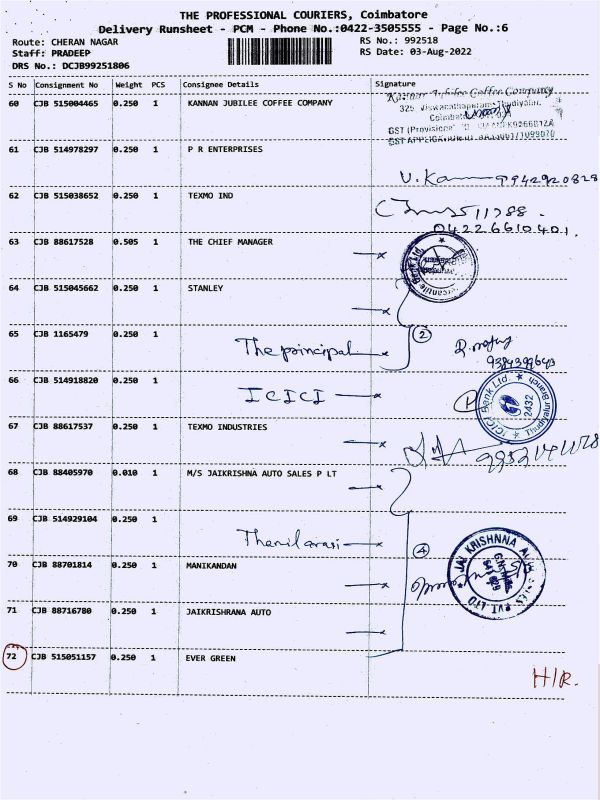 THE PROFESSIONAL COURIERS, Coimbatore
Delivery Runsheet - PCM - Phone No.:0422-3505555 - Page No.:6
Route: CHERAN NAGAR
RS No.: 992518
Staff: PRADEEP
RS Date: 03-Aug-2022
DRS No.: DCJB99251806
S No Consignment No Weight PCS Consignee Details Signature
60 CJB 515004465 0.250 1 KANNAN JUBILEE COFFEE COMPANY
Kannan Jubilee Coffee Company
61 CJB 514978297 0.250 1 P R ENTERPRISES
9942920828
62 CJB 515038652 0.250 1 TEXMO IND
511788
04226610401
63 CJB 88617528 0.505 1 THE CHIEF MANAGER
64 CJB 515045662 0.250 1 STANLEY
65 CJB 1165479 0.250 1 The principal
2
66 CJB 514918820 0.250 1 ICICI
ICICI Bank Ltd. Thudiyalur Branch
2432
67 CJB 88617537 0.250 1 TEXMO INDUSTRIES
68 CJB 88405970 0.010 1 M/S JAIKRISHNA AUTO SALES P LT
69 CJB 514929104 0.250 1 Thenilarasi
4
JAI KRISHNNA AUTO SALES PVT LTD
70 CJB 88701814 0.250 1 MANIKANDAN
71 CJB 88716780 0.250 1 JAIKRISHRANA AUTO
72 CJB 515051157 0.250 1 EVER GREEN
H/R.